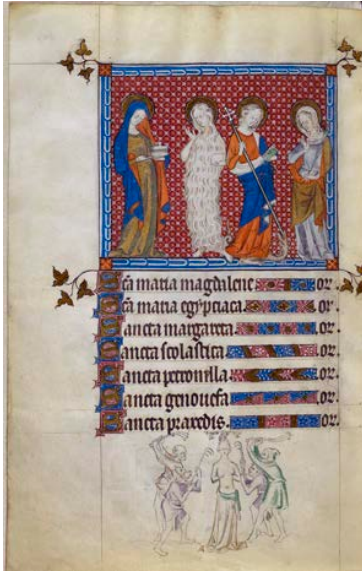 Sc̄a maria magdalene. or.
Sc̄a maria egyptiaca. or.
Sancta margareta. or.
Sancta scolastica. or.
Sancta petronilla. or.
Sancta genouefa. or.
Sancta praxedis. or.